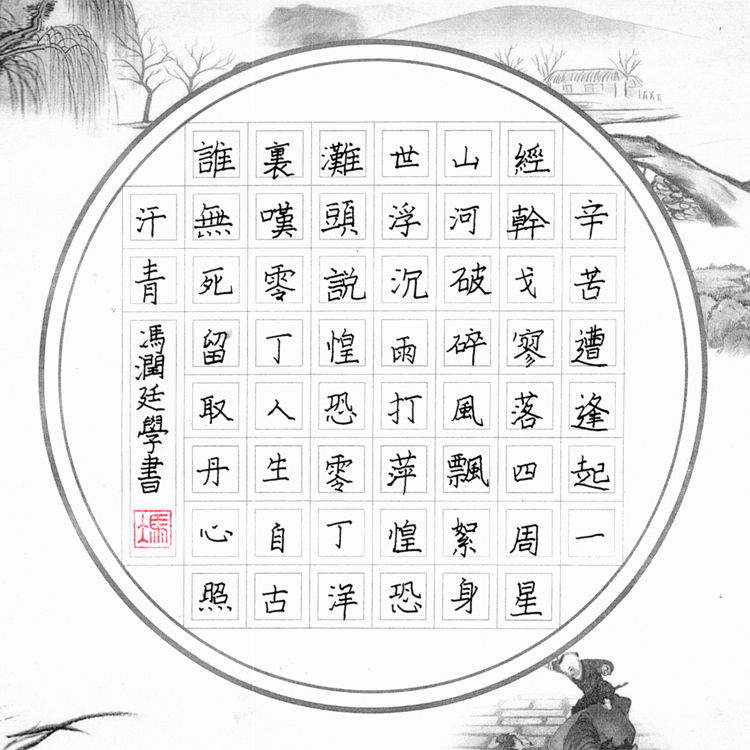 辛苦遭逢起一
經幹戈寥落四周星
山河破碎風飄絮身
世浮沉雨打萍惶恐
灘頭説惶恐零丁洋
裏嘆零丁人生自古
誰無死留取丹心照
汗青
馮潤廷學書